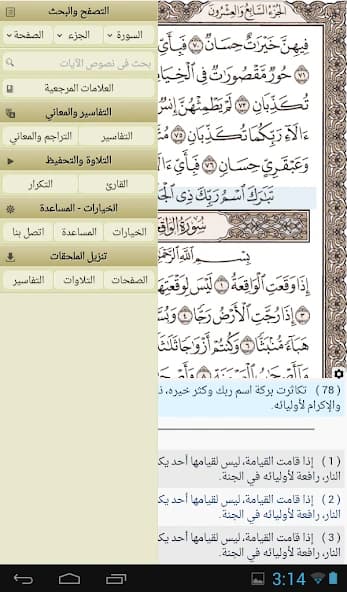 التصفح والبحث
السورة
الجزء
الصفحة
بحث في نصوص الآيات
العلامات المرجعية
التفاسير والمعاني
التفاسير
التراجم والمعاني
التلاوة والتحفيظ
القارئ
التكرار
الخيارات - المساعدة
الخيارات
المساعدة
اتصل بنا
تنزيل الملحقات
الصفحات
التلاوات
التفاسير
الجزء السابع والعشرون
فِيهِنَّ خَيْرَٰتٌ حِسَانٌ ٧٠ فَبِأَيِّ
٧١ حُورٌ مَّقْصُورَٰتٌ فِي ٱلْخِيَامِ
تُكَذِّبَانِ ٧٣ لَمْ يَطْمِثْهُنَّ إِنسٌ
ءَالَآءِ رَبِّكُمَا تُكَذِّبَانِ ٧٥
وَعَبْقَرِيٍّ حِسَانٍ ٧٦ فَبِأَيِّ ءَالَآءِ
تَبَٰرَكَ ٱسْمُ رَبِّكَ ذِي
سُورَةُ الواقعة
بِسْمِ ٱللَّهِ
إِذَا وَقَعَتِ ٱلْوَاقِعَةُ ١ لَيْسَ لِوَقْعَتِهَا
٣ إِذَا رُجَّتِ ٱلْأَرْضُ رَجًّا ٤
هَبَآءً مُّنۢبَثًّا ٦ وَكُنتُمْ أَزْوَٰجًا ثَلَٰثَةً
( 78 ) تكاثرت بركة اسم ربك وكثر خيره،
والإكرام لأوليائه.
( 1 ) إذا قامت القيامة، ليس لقيامها أحد
النار، رافعة لأوليائه في الجنة.
( 2 ) إذا قامت القيامة، ليس لقيامها أحد
النار، رافعة لأوليائه في الجنة.
( 3 ) إذا قامت القيامة، ليس لقيامها أحد
النار، رافعة لأوليائه في الجنة.
3:14